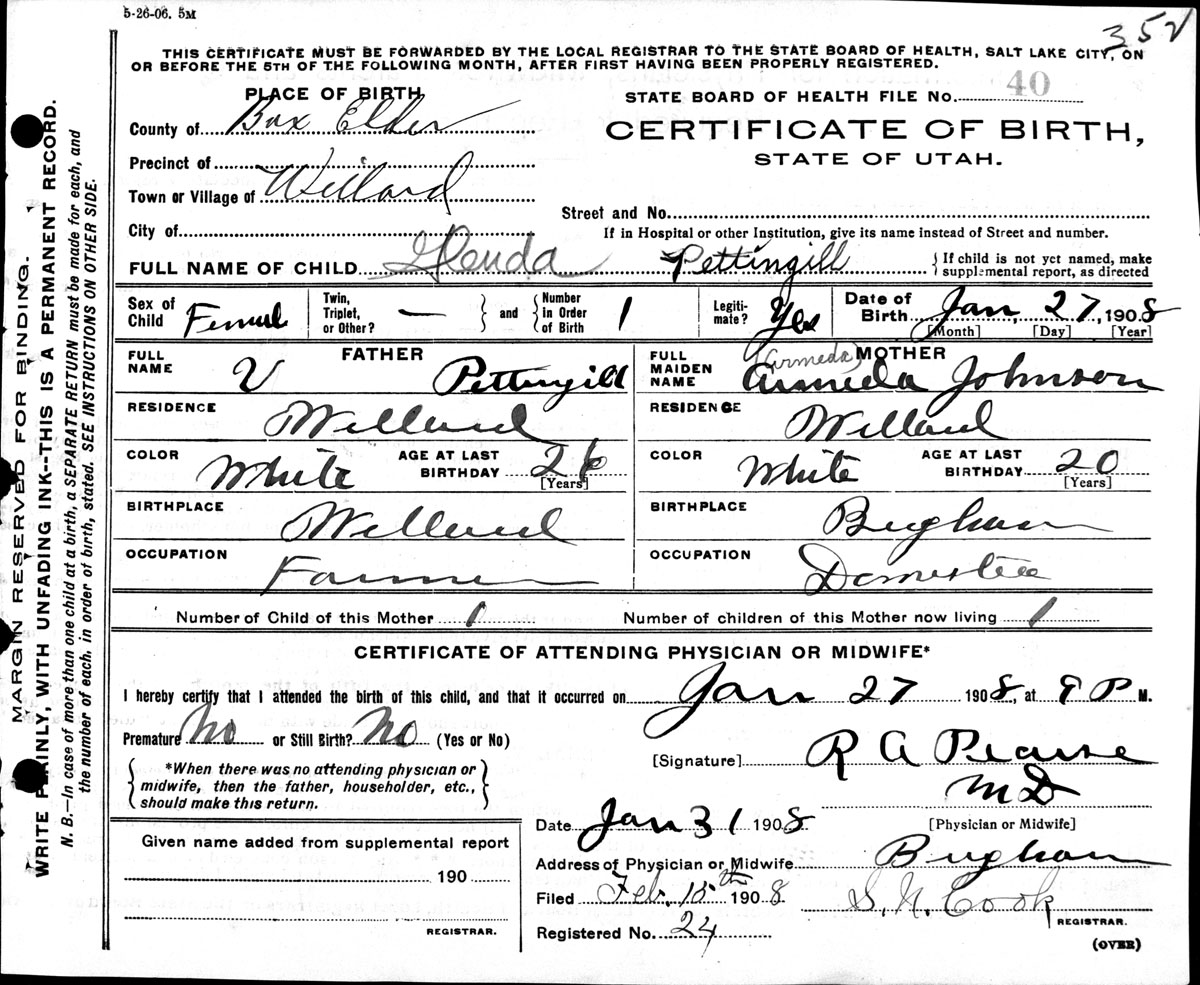 5-26-06. 5M
352
THIS CERTIFICATE MUST BE FORWARDED BY THE LOCAL REGISTRAR TO THE STATE BOARD OF HEALTH, SALT LAKE CITY, ON
OR BEFORE THE 5TH OF THE FOLLOWING MONTH, AFTER FIRST HAVING BEEN PROPERLY REGISTERED.
MARGIN RESERVED FOR BINDING.
WRITE PLAINLY, WITH UNFADING INK--THIS IS A PERMANENT RECORD.
N. B.—In case of more than one child at a birth, a SEPARATE RETURN must be made for each, and
the number of each, in order of birth, stated. SEE INSTRUCTIONS ON OTHER SIDE.
PLACE OF BIRTH
County of Box Elder
Precinct of
Town or Village of Willard
City of
STATE BOARD OF HEALTH FILE No. 40
CERTIFICATE OF BIRTH,
STATE OF UTAH.
Street and No.
If in Hospital or other Institution, give its name instead of Street and number.
FULL NAME OF CHILD Glenda Pettingill
If child is not yet named, make
supplemental report, as directed
Sex of Child Female
Twin, Triplet, or Other? —
and Number in Order of Birth 1
Legitimate? Yes
Date of Birth Jan, 27, 1908
[Month] [Day] [Year]
FATHER
FULL NAME V Pettingill
RESIDENCE Willard
COLOR White AGE AT LAST BIRTHDAY 26
[Years]
BIRTHPLACE Willard
OCCUPATION Farmer
MOTHER
(Armeda)
FULL MAIDEN NAME Armeda Johnson
RESIDENCE Willard
COLOR White AGE AT LAST BIRTHDAY 20
[Years]
BIRTHPLACE Brigham
OCCUPATION Domestic
Number of Child of this Mother 1 Number of children of this Mother now living 1
CERTIFICATE OF ATTENDING PHYSICIAN OR MIDWIFE*
I hereby certify that I attended the birth of this child, and that it occurred on Jan 27 1908, at 9 P M.
Premature No or Still Birth? No (Yes or No)
*When there was no attending physician or
midwife, then the father, householder, etc.,
should make this return.
[Signature] R A Pearse
MD
[Physician or Midwife]
Date Jan 31 1908
Address of Physician or Midwife Brigham
Filed Feb. 15th 1908 S. N. Cook
REGISTRAR.
Registered No. 24
(OVER)
Given name added from supplemental report
190
REGISTRAR.